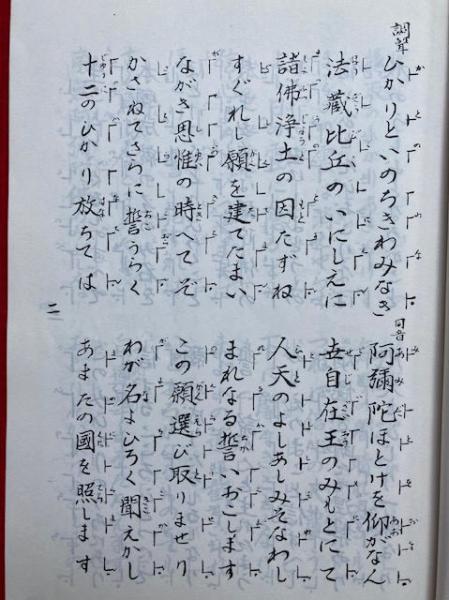 調声 ひかりといのちきわみなき 同音 阿彌陀ほとけを仰がなん
法蔵比丘のいにしえに 世自在王のみもとにて
諸佛浄土の因たずね 人天のよしあしみそなわし
すぐれし願を建てたまい まれなる誓いおこします
ながき思惟の時へてぞ この願選び取りませり
かさねてさらに誓うらく わが名よひろく聞えかし
十二のひかり放ちては あまたの國を照します
二